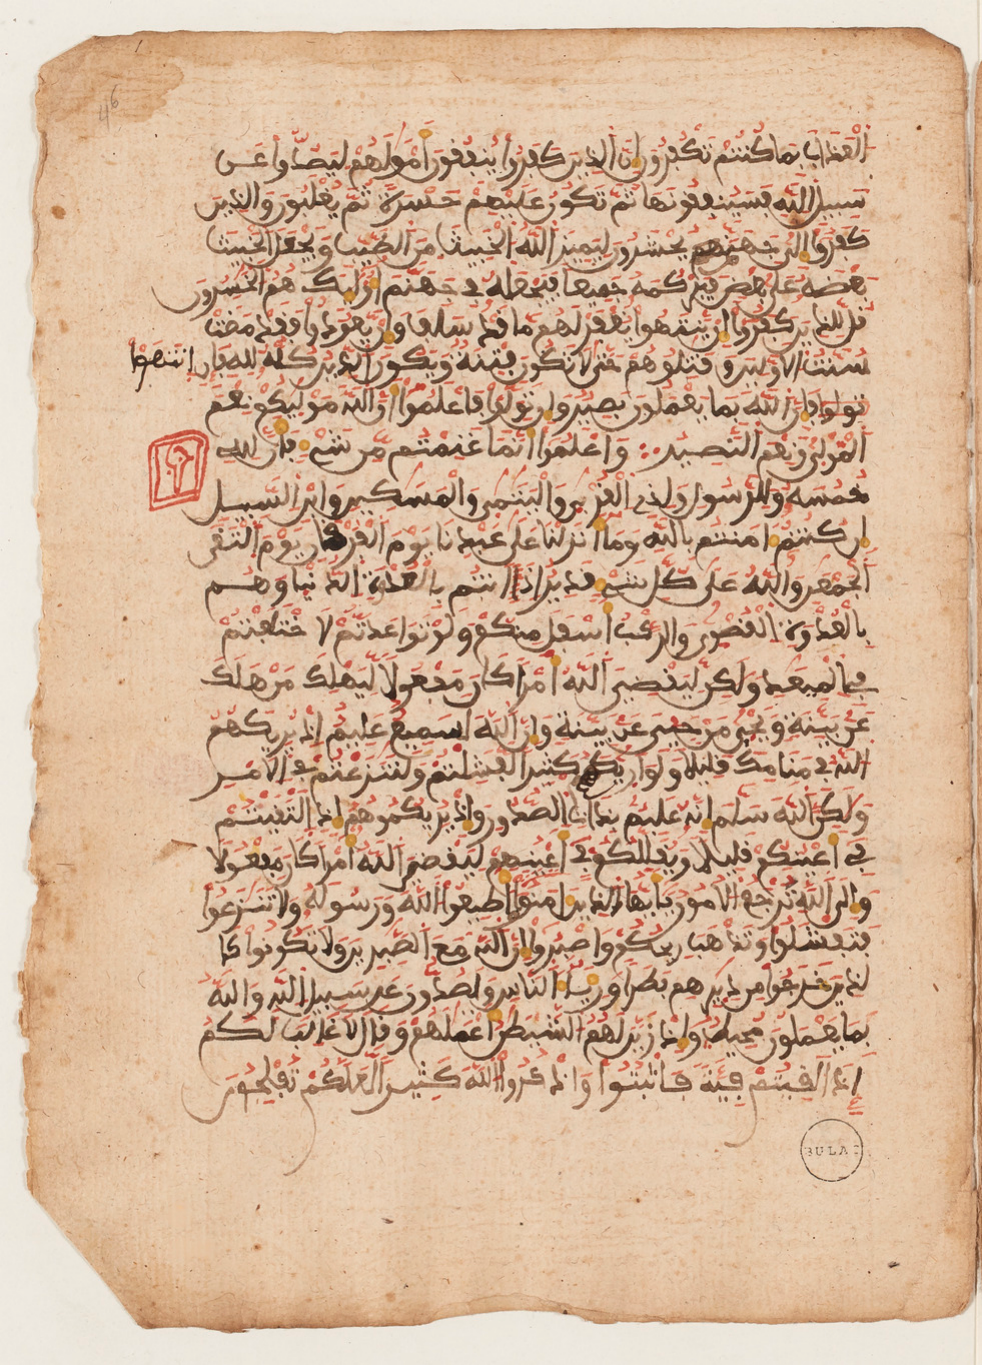 46
العذاب بما كنتم تكفرون ان الذين كفروا ينفقون امولهم ليصدوا عن
سبيل الله فسينفقونها ثم تكون عليهم حسرة ثم يغلبون والذين
كفروا الى جهنم يحشرون ليميز الله الخبيث من الطيب ويجعل الخبيث
بعضه على بعض فيركمه جميعا فيجعله في جهنم اوليك هم الخسرون
قل للذين كفروا ان ينتهوا يغفر لهم ما قد سلف وان يعودوا فقد مضت
سنت الاولين وقتلوهم حتى لا تكون فتنة ويكون الدين كله لله فان انتهوا
تولوا فان الله بما يعملون بصير وان تولوا فاعلموا ان الله موليكم نعم
المولى ونعم النصير واعلموا انما غنمتم من شيء فان لله
خمسه وللرسول ولذي القربى واليتمى والمسكين وابن السبيل
ان كنتم امنتم بالله وما انزلنا على عبدنا يوم الفرقان يوم التقى
الجمعن والله على كل شيء قدير اذ انتم بالعدوة الدنيا وهم
بالعدوة القصوى والركب اسفل منكم ولو تواعدتم لاختلفتم
في الميعد ولكن ليقضي الله امرا كان مفعولا ليهلك من هلك
عن بينة ويحيى من حيي عن بينة وان الله لسميع عليم اذ يريكهم
الله في منامك قليلا ولو اريكهم كثيرا لفشلتم ولتنزعتم في الامر
ولكن الله سلم انه عليم بذات الصدور واذ يريكموهم اذ التقيتم
في اعينكم قليلا ويقللكم في اعينهم ليقضي الله امرا كان مفعولا
والى الله ترجع الامور يايها الذين امنوا اطيعوا الله ورسوله ولا تنزعوا
فتفشلوا وتذهب ريحكم واصبروا ان الله مع الصبرين ولا تكونوا كا
لذين خرجوا من ديرهم بطرا ورئاء الناس ويصدون عن سبيل الله والله
بما يعملون محيط واذ زين لهم الشيطن اعملهم وقال لا غالب لكم
اذا لقيتم فية فاثبتوا واذكروا الله كثيرا لعلكم تفلحون
BULAC